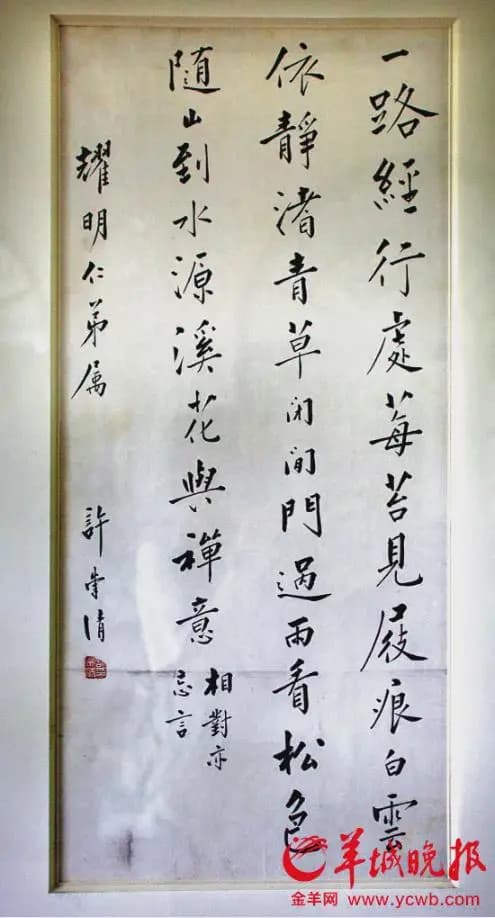 一路經行處莓苔見屐痕白雲
依靜渚青草閉閒門過雨看松色
隨山到水源溪花與禪意
相對亦
忘言
耀明仁弟属
許崇清
羊城晚报
金羊网 www.ycwb.com